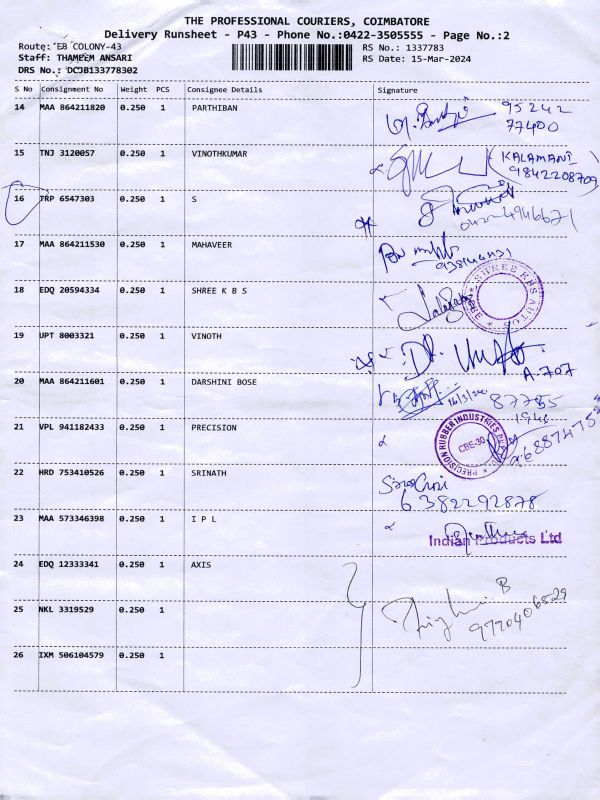 THE PROFESSIONAL COURIERS, COIMBATORE
Delivery Runsheet - P43 - Phone No.:0422-3505555 - Page No.:2
Route: EB COLONY-43
RS No.: 1337783
Staff: THAMEEM ANSARI
RS Date: 15-Mar-2024
DRS No.: DCJB133778302
S No Consignment No Weight PCS Consignee Details Signature
14 MAA 864211820 0.250 1 PARTHIBAN
95242
77400
15 TNJ 3120057 0.250 1 VINOTHKUMAR
(KALAMANI)
9842208709
16 TRP 6547303 0.250 1 S
0422-4946671
17 MAA 864211530 0.250 1 MAHAVEER
18 EDQ 20594334 0.250 1 SHREE K B S
19 UPT 8003321 0.250 1 VINOTH
A-707
20 MAA 864211601 0.250 1 DARSHINI BOSE
87755
21 VPL 941182433 0.250 1 PRECISION
PRECISION RUBBER INDUSTRIES
CBE-30
22 HRD 753410526 0.250 1 SRINATH
6382292878
23 MAA 573346398 0.250 1 I P L
Indian Products Ltd
24 EDQ 12333341 0.250 1 AXIS
25 NKL 3319529 0.250 1
9720406529
26 IXM 506104579 0.250 1